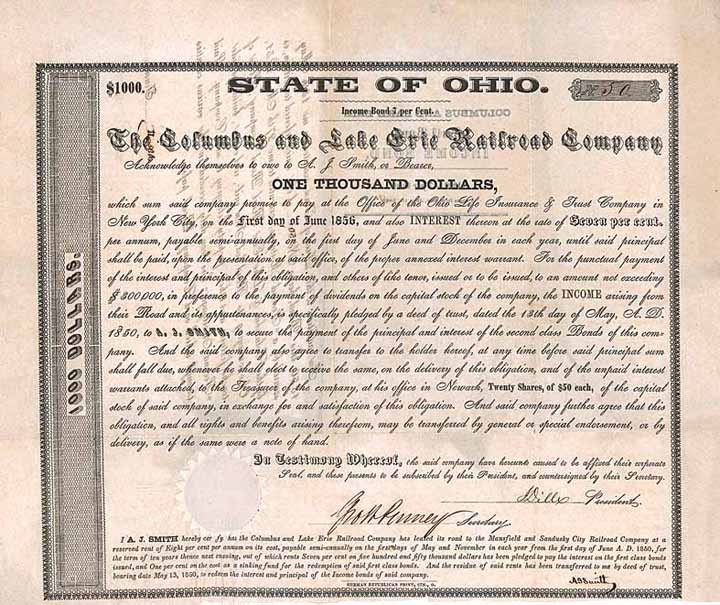 STATE OF OHIO.
$1000.
No 50
Income Bond 7 per Cent.
The Columbus and Lake Erie Railroad Company
Acknowledge themselves to owe to A. J. Smith, or Bearer,
ONE THOUSAND DOLLARS,
which sum said company promise to pay at the Office of the Ohio Life Insurance & Trust Company in
New York City, on the First day of June 1856, and also INTEREST thereon at the rate of Seven per cent.
per annum, payable semi-annually, on the first day of June and December in each year, until said principal
shall be paid, upon the presentation at said office, of the proper annexed interest warrant. For the punctual payment
of the interest and principal of this obligation, and others of like tenor, issued or to be issued, to an amount not exceeding
$300,000, in preference to the payment of dividends on the capital stock of the company, the INCOME arising from
their Road and its appurtenances, is specifically pledged by a deed of trust, dated the 13th day of May, A. D.
1850, to A. J. SMITH, to secure the payment of the principal and interest of the second class Bonds of this com-
pany. And the said company also agree to transfer to the holder hereof, at any time before said principal sum
shall fall due, whenever he shall elect to receive the same, on the delivery of this obligation, and of the unpaid interest
warrants attached, to the Treasurer of the company, at his office in Newark, Twenty Shares, of $50 each, of the capital
stock of said company, in exchange for and satisfaction of this obligation. And said company further agree that this
obligation, and all rights and benefits arising therefrom, may be transferred by general or special endorsement, or by
delivery, as if the same were a note of hand.
In Testimony Whereof, the said company have hereunto caused to be affixed their corporate
Seal, and these presents to be subscribed by their President, and countersigned by their Secretary.
President.
Secretary
I A. J. SMITH hereby cer fy has the Columbus and Lake Erie Railroad Company has leased its road to the Mansfield and Sandusky City Railroad Company at a
reserved rent of Eight per cent per annum on its cost, payable semi-annually on the first days of May and November in each year from the first day of June A. D. 1850, for
the term of ten years thence next ensuing, out of which rents Seven per cent on five hundred and fifty thousand dollars has been pledged to pay the interest on the first class bonds
issued, and One per cent on the cost as a sinking fund for the redemption of said first class bonds. And the residue of said rents has been transferred to me by deed of trust,
bearing date May 13, 1850, to redeem the interest and principal of the Income bonds of said company.
A J Smith
GERMAN REPUBLICAN PRINT, CIN., O.
1000 DOLLARS.